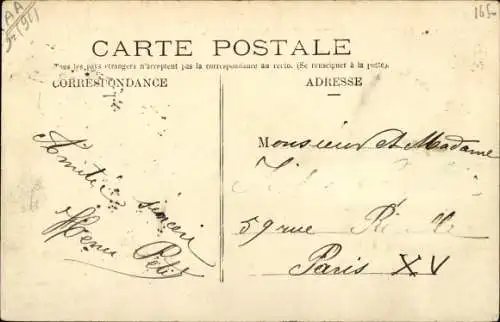 165
CARTE POSTALE
Tous les pays étrangers n'acceptent pas la correspondance au recto. (Se renseigner à la poste).
CORRESPONDANCE
ADRESSE
Amitié sincère
Petit
Monsieur et Madame
59 rue
Paris XV